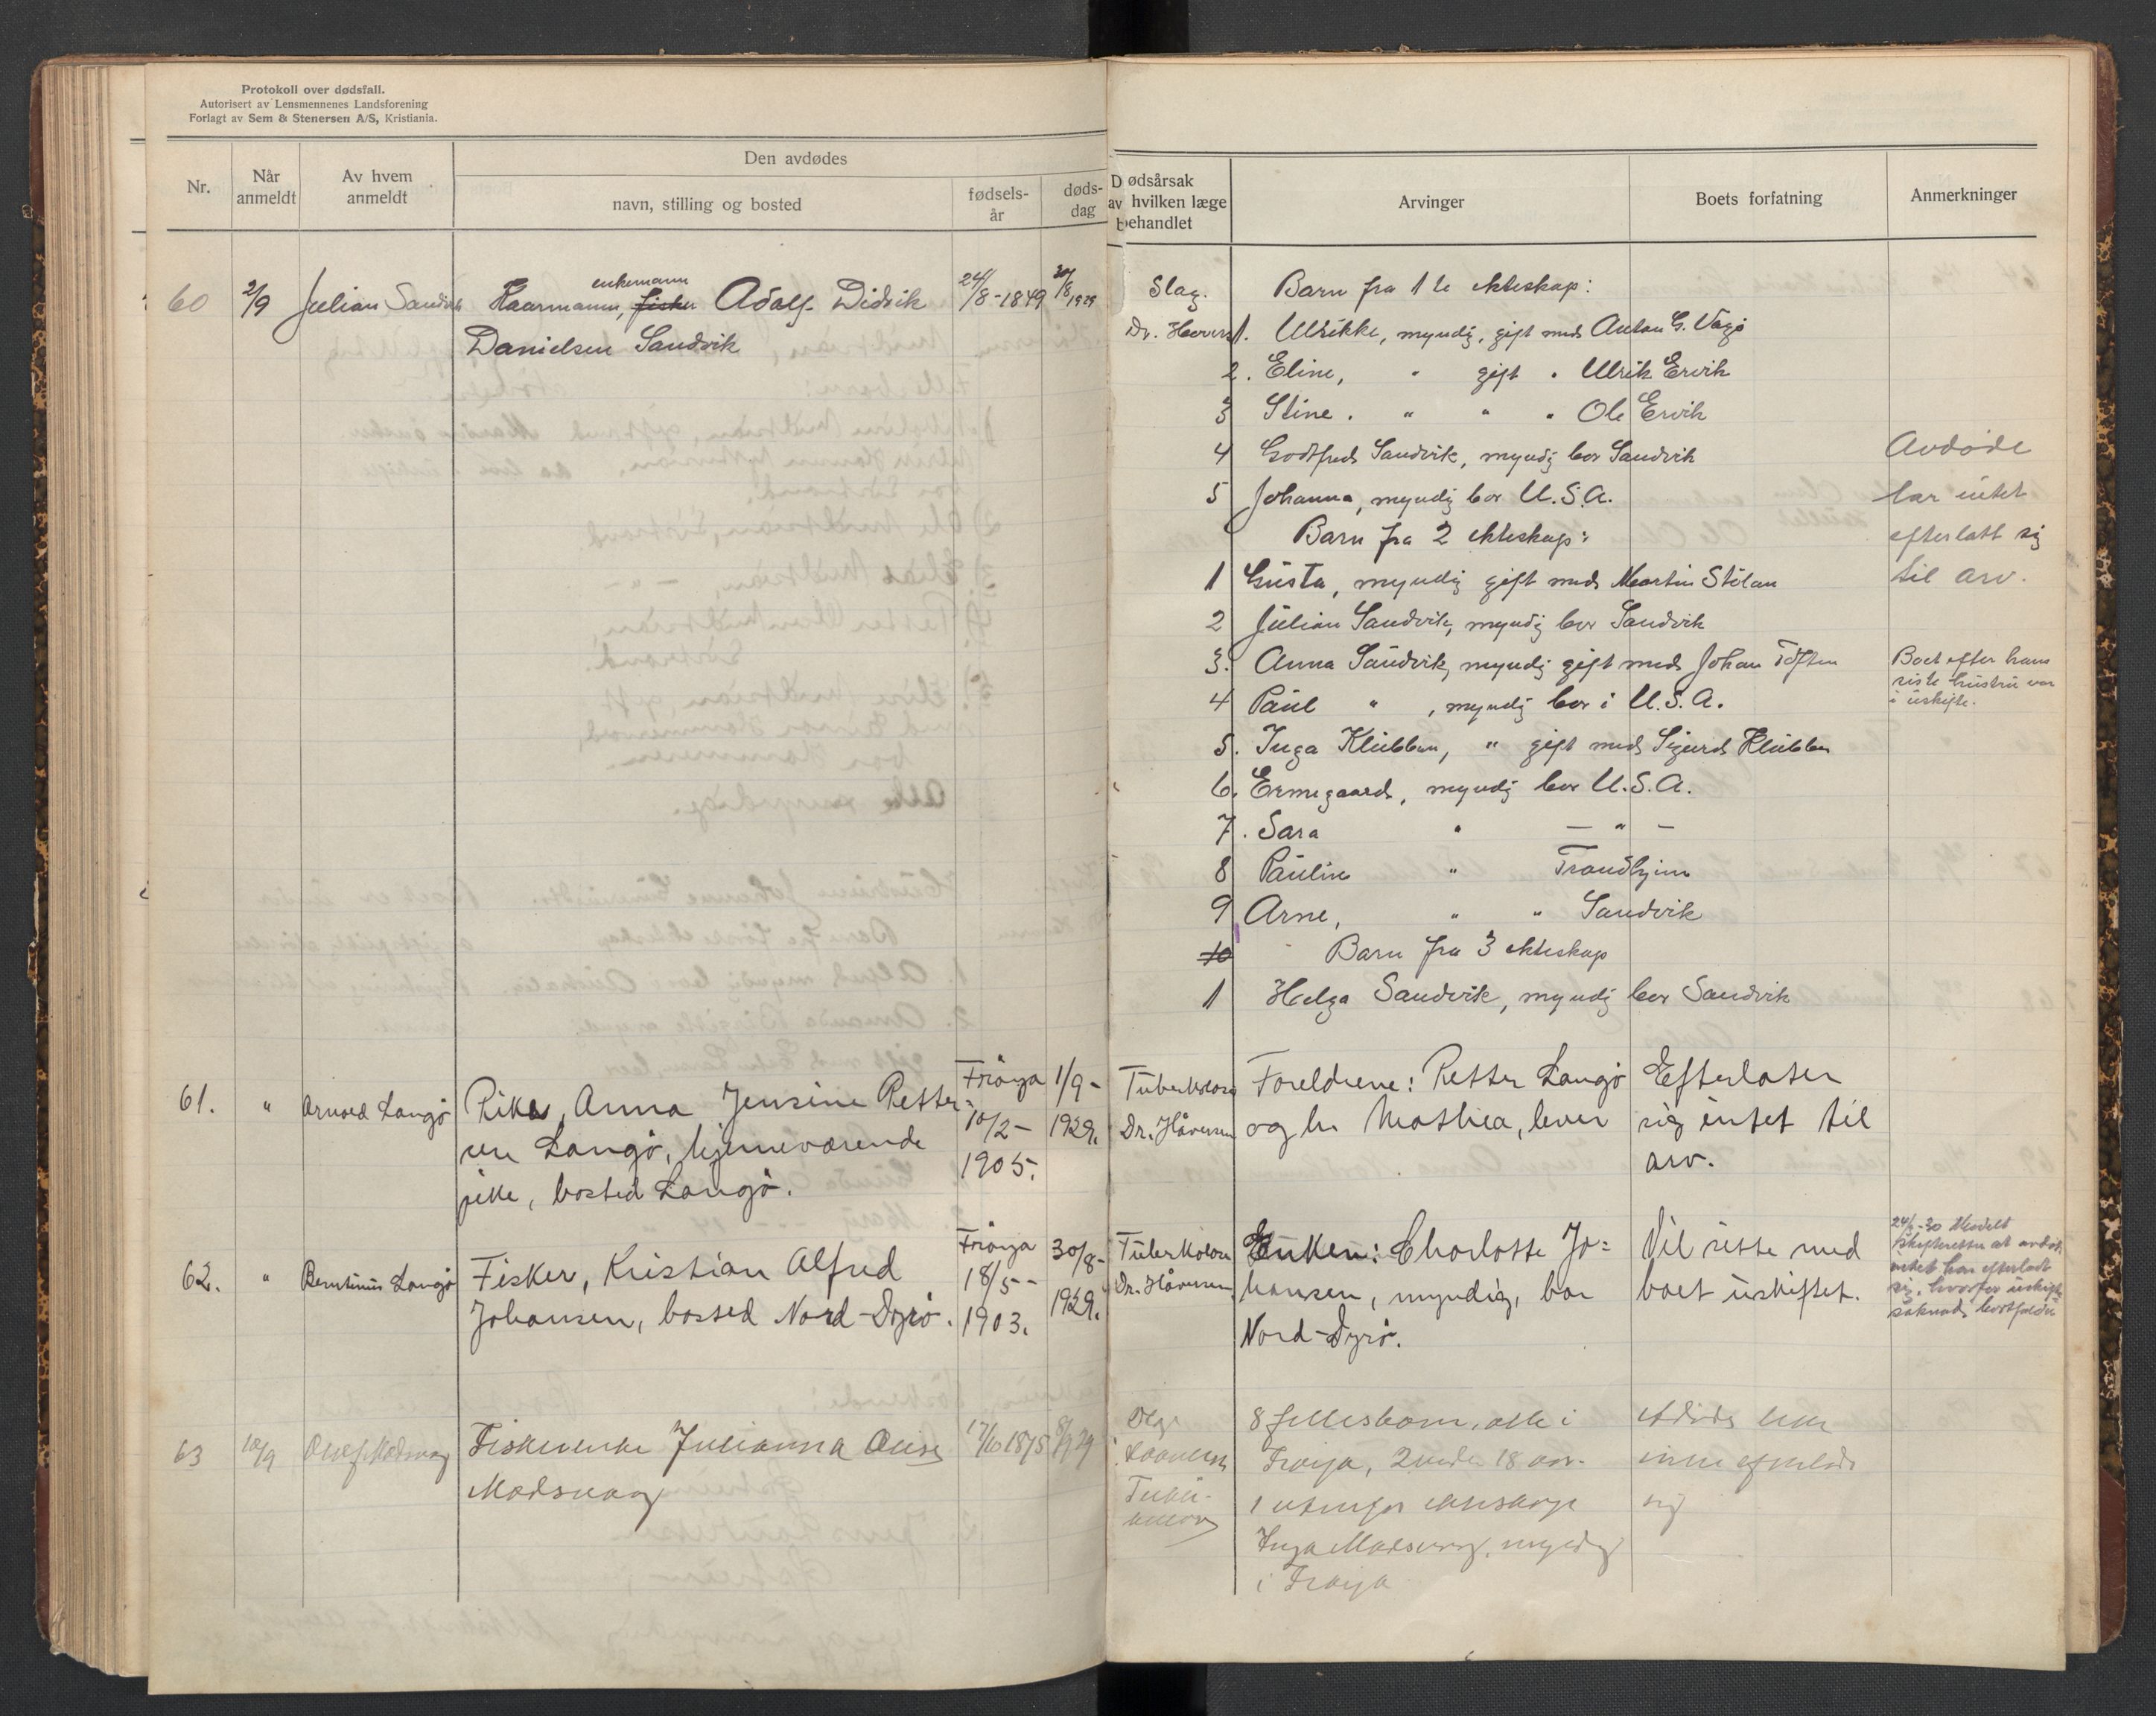 Protokoll over dødsfall.
Autorisert av Lensmennenes Landsforening
Forlagt av Sem & Stenersen A/S, Kristiania.
Nr.
Når anmeldt
Av hvem anmeldt
Den avdødes
navn, stilling og bosted
fødsels-år
døds-dag
Dødsårsak
av hvilken læge
behandlet
Arvinger
Boets forfatning
Anmerkninger
60 2/9 Julian Sandvik
enkemann
Kaarmann, fisker Adolf Didrik
Danielsen Sandvik
24/8-1849 30/8 1929
Slag.
Barn fra 1ste ekteskap:
1. Ulrikke, myndig, gift med Anton G. Vågø
2. Eline, " gift " Ulrik Ervik
3 Stine. " " " Ole Ervik
4 Godtfred Sandvik, myndig bor Sandvik
5 Johanna, myndig bor U.S.A.
Barn fra 2 ekteskap:
1 Gusta, myndig gift med Martin Stølan
2 Julian Sandvik, myndig bor Sandvik
3. Anna Sandvik, myndig gift med Johan Toften
4 Paul " , myndig bor i U.S.A.
5. Inga Klubben, " gift med Sigurd Klubben
6. Ermegaard, myndig bor U.S.A.
7. Sara " — " —
8 Pauline " Trondhjem
9 Arne, " " Sandvik
10 Barn fra 3 ekteskap
1 Helga Sandvik, myndig bor Sandvik
Avdøde
har intet
efterlatt sig
til arv.
Boet efter hans
siste hustru var
i uskifte.
61. " Arnold Langø
Rika, Anna Jensine Petter-
sen Langø, hjemmeværende
pike, bosted Langø.
Frøya
10/2-
1905.
1/9-
1929.
Tuberkolose
Dr. Håversen
Foreldrene: Petter Langø
og h. Mathea, lever
Efterlater
sig intet til
arv.
62. " Berntinus Langø
Fisker, Kristian Alfred
Johansen, bosted Nord-Dyrø.
Frøya
18/5-
1903.
30/8-
1929.
Tuberkolose
Dr. Håversen
Enken: Charlotte Jo=
hansen, myndig, bor
Nord-Dyrø.
Vil sitte med
boet uskiftet.
skifteretten at avdøde
intet har efterladt
sig, hvorfor uskifte
63 10/9
Fiskerenke Julianna Olise
Madsvaag
17/10 1875 8/9 29
8 fellesbarn, alle i
Frøya, 2 under 18 aar.
1 utenfor ekteskap
Inga Madsvaag, myndig
i Frøya
sig